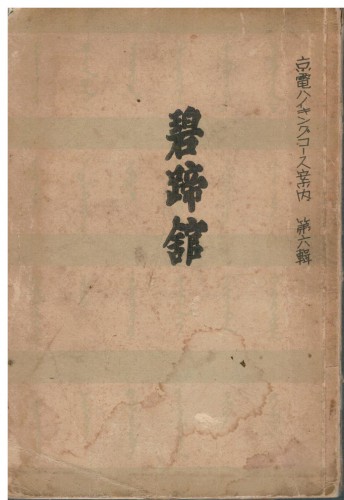 京電ハイキングコース案内　第六輯
碧蹄舘